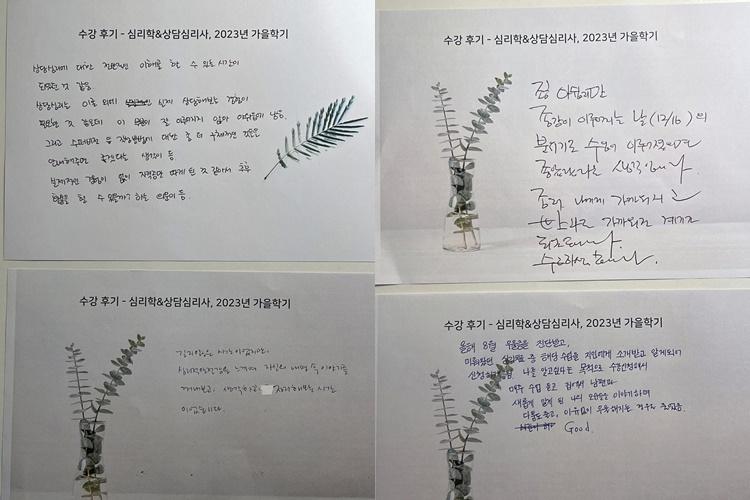 수강 후기 - 심리학&상담심리사, 2023년 가을학기
상담심리에 대한 전반적인 이해를 할 수 있는 시간이
되었던 것 같음.
상담심리는 이론 외에 실제 상담해보는 경험이
필요한 것 같은데 이 부분이 잘 이루어지지 않아 아쉬움이 남음.
그리고 수퍼비전 및 진행방법에 대한 좀 더 구체적인 것을
안내해주면 좋겠다는 생각이 듬
본격적인 경험이 없이 자격증만 따게 된 것 같아서 추후
활용을 할 수 있을까? 하는 의문이 듬.
수강 후기 - 심리학&상담심리사, 2023년 가을학기
좀 아쉽지만
종강이 이루어지는 날(12/16)의
분위기로 수업이 이루어졌으면
좋았겠다라는 생각입니다.
좀더 나에게 가까워지고
바로 가까워진 계기가
되었습니다.
수고하셨습니다.
수강 후기 - 심리학&상담심리사, 2023년 가을학기
길지않은 시간이었지만,
심리적안정감을 느끼며 자신의 내면 속 이야기를
꺼내보고, 생각하고 정리해보는 시간
이었습니다.
수강 후기 - 심리학&상담심리사, 2023년 가을학기
올해 8월 우울증을 진단받고,
미뤄왔던 심리공부 중 해당 수업을 지인에게 소개받고 알게되어
신청하였음. 나를 알고싶다는 목적으로 수강신청해서
매주 수업 듣고 집에서 남편과
새롭게 알게 된 나의 모습들을 이야기하며
다툼도 줄고, 이유없이 우울해지는 경우도 줄었음.
Good.